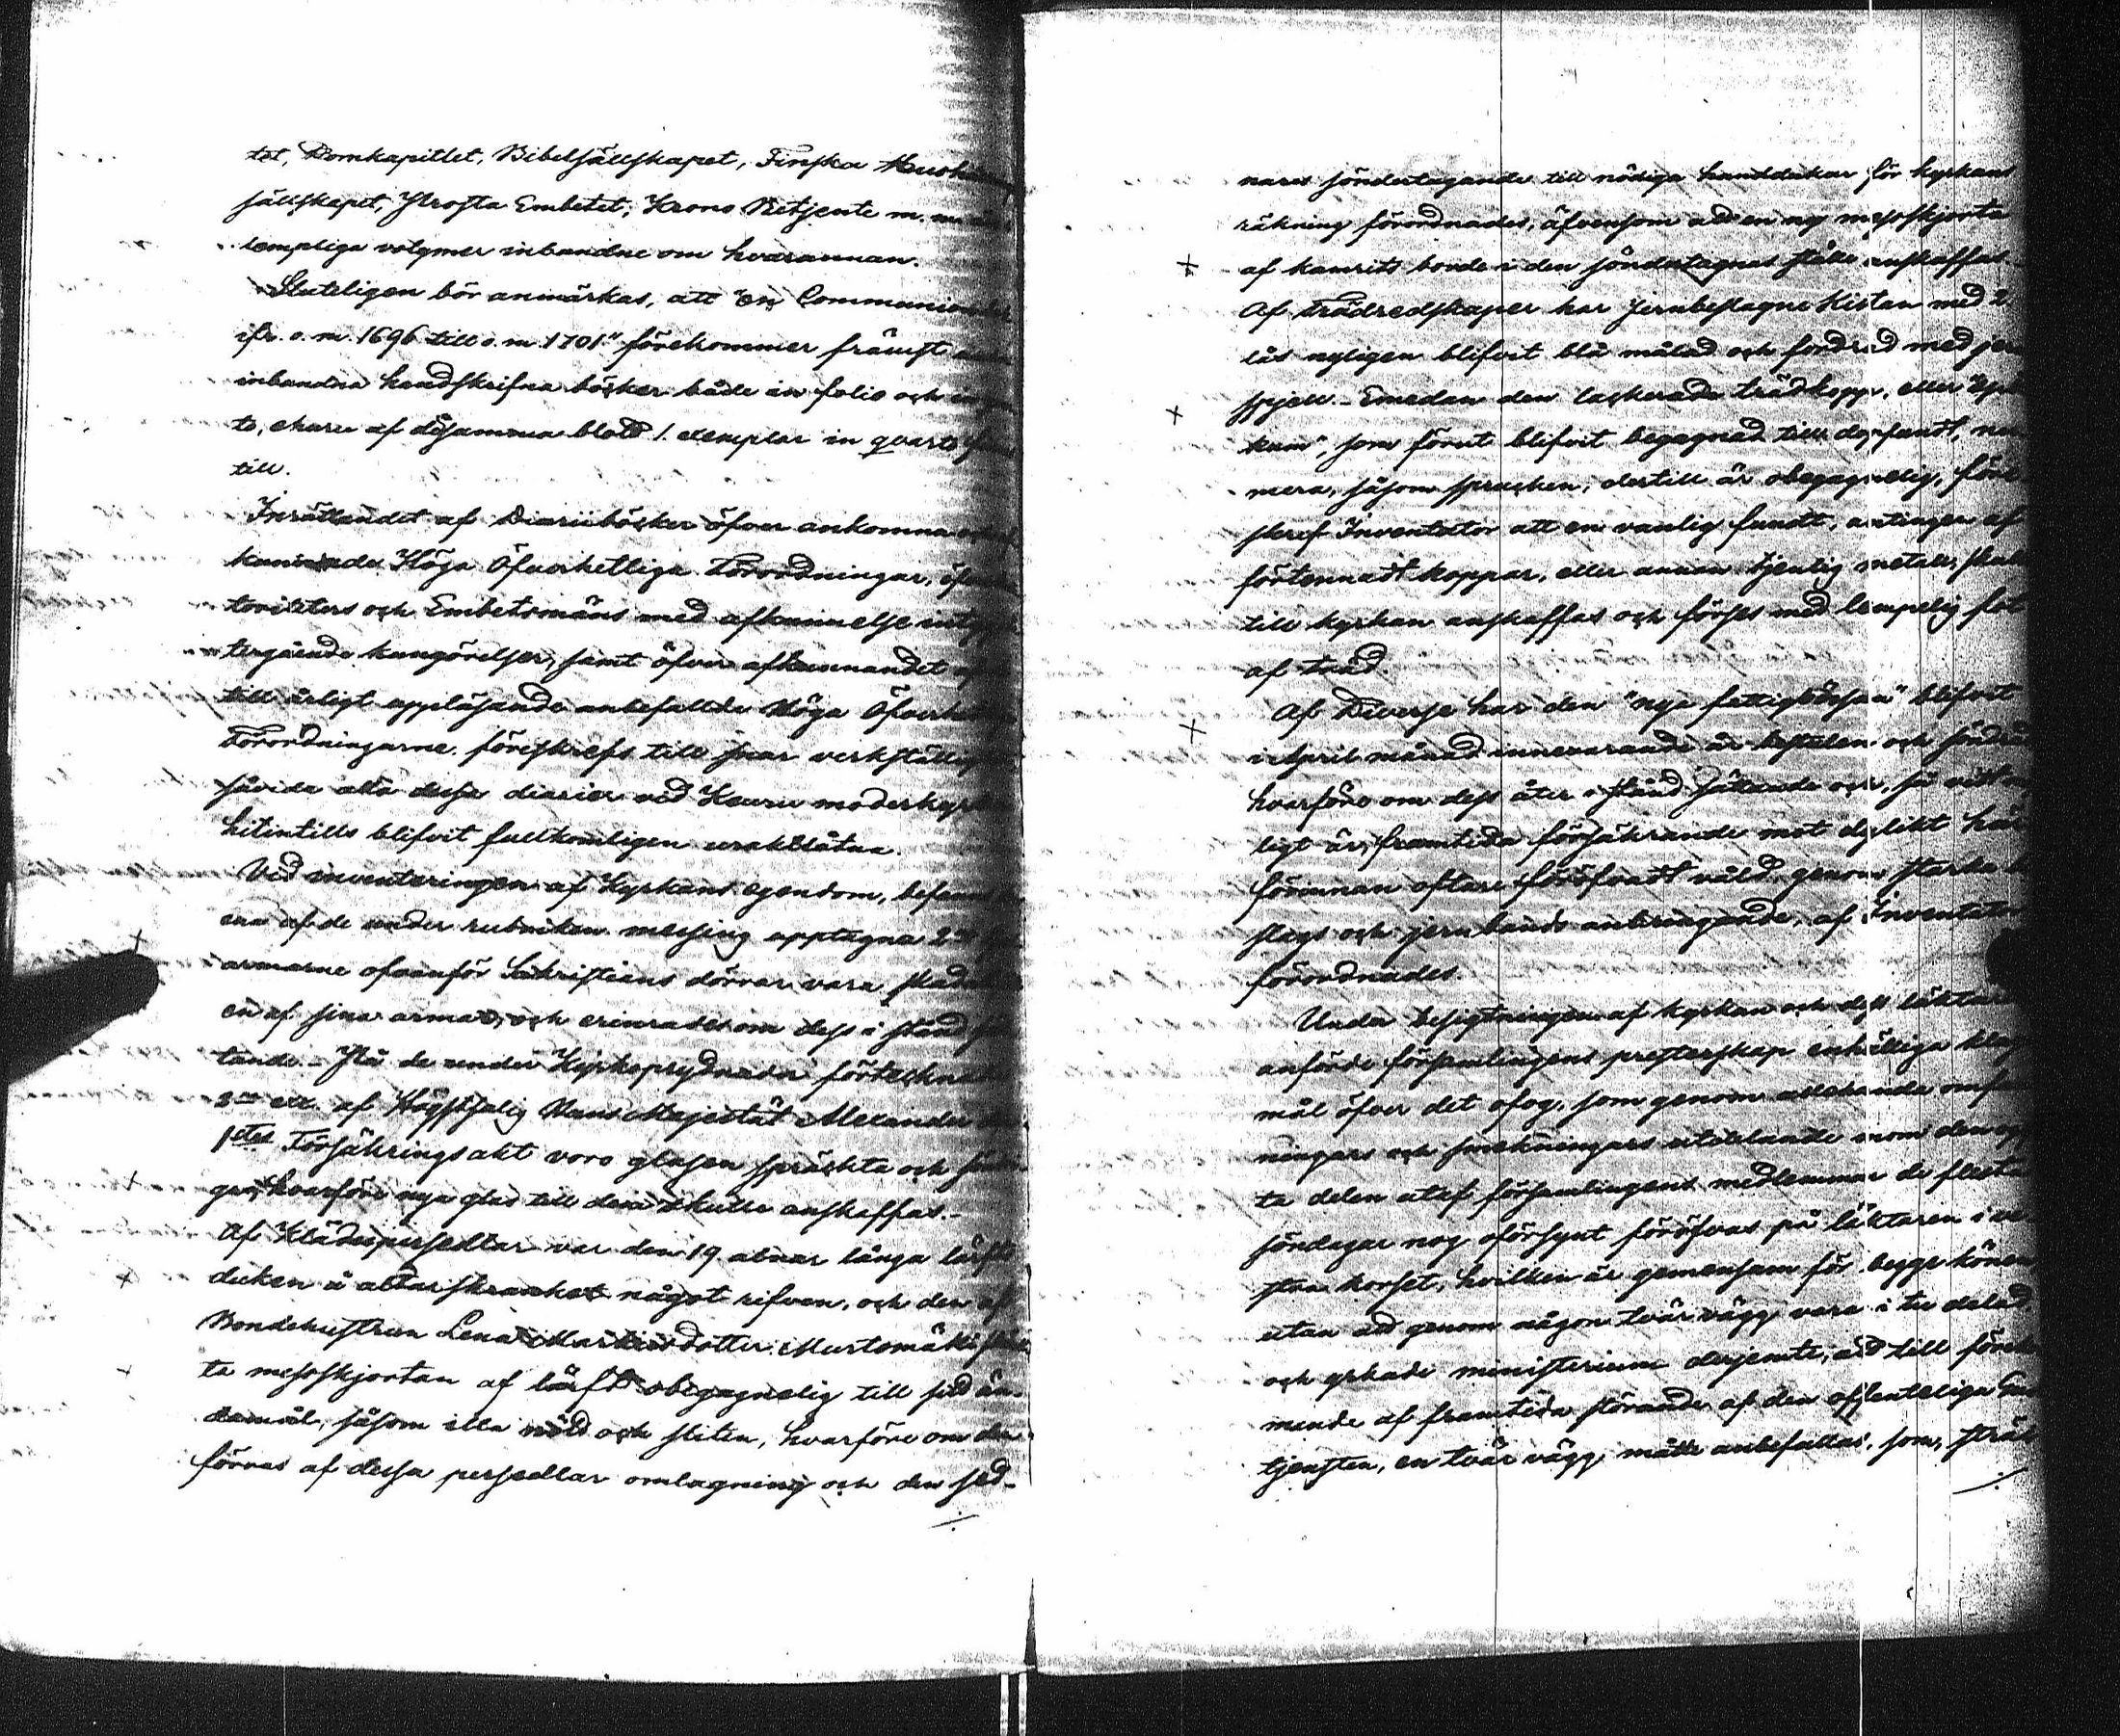 tet, Domkapitlet, Bibelsällskapet, Finska Hushåln
sällskapet, Prosta Embetet, Krono Betjente m. m.
lempliga volymer inbandne om hvarannan.
Sluteligen bör anmärkas, att "en Communion
ifr. o. m. 1696 till o. m. 1701" förekommer främst
inbandna handskrifna böcker både in folio och
to, ehuru af desamma blott 1. exemplar in qvarto
till.
Inrättandet af Diariiböcker öfver ankomna och
Höga Öfverhetliga Förordningar,
toriteters och Embetsmäns med afkunnelse
tergående kungörelser, samt öfver afkunnandet af
till årligt uppläsande anbefallde Höga Öfverhet
Förordningarne, föreskrefs till snar verkställig
såvida alla dessa diarier vid Keuru moderkyrk
hitintills blifvit fullkomligen uraktlåtna.
Vid inventeringen af Kyrkans egendom, befanns
ena af de under rubriken messing upptagna 2ne
armarne ofvanför Sakristians dörrar vara skadad
en af sina armar, och erinrades om dess i stånd
tande. På de under Kyrkoprydnader förteckna
2ne ex. af Högstsalig Hans Majestät Alexander den
1stes Försäkringsakt voro glasen spräckta och sönder
gna, hvarföre nya glas till dem skulle anskaffas.-
Af Klädespersedlar var den 19. alnar långa lärfts
duken å altarskranket något rifven, och den af
Bondehustrun Lena Markusdotter Murtomäki skänk
ta messskjortan af lärft obegagnelig till sed än-
damål, såsom illa nöld och sliten, hvarföre om den
förras af dessa persedlar omlagning och den sed-
nares söndertagande till nödiga handdukar för kyrkans
räkning förordnades, äfvensom att en ny messskjorta
af kamrits borde i den söndertagnas ställe anskaffas
Af trädredskaper har Jernbeslagne Kistan med 2.
lås nyligen blifvit blå målad och fordrad med jern
spjell. Emedan den lackerade trädkoppe, eller
kum", som förut blifvit begagnad till dopfundt, nu
mera, såsom sprucken, dertill är obegagnelig, före
skref Inventator att en vanlig fundt, antingen af
förtennadt koppar, eller annan tjenlig metall, skall
till kyrkan anskaffas och förses med lempelig fot
af träd.
Af Diverse har den "nya fattigbössan" blifvit
i April månad innevarande år bestulen och söndrad
hvarföre om dess åter i stånd sättande och, så vidt
ligt är, framtida försäkrande mot dylikt här
förinnan oftare föröfvadt våld genom starka
slags och jernbands anbringande, af Inventator
förordnades.
Under besigtningen af kyrkan och dess läktare
anförde församlingens presterskap enhälliga klago
mål öfver det ofog, som genom allehanda omfam
ningars och smekningars utdelande inom den
ta delen utaf församlingens medlemmar de flesta
söndagar nog oförsynt föröfvas på läktaren i ve-
stra korset, hvilken är gemensam för begge könen
utan att genom någon tvär vägg vara i tu delad
och yrkade ministerium derjemte, att till förekom
mende af framtida störande af den offentliga Guds
tjensten, en tvär vägg måtte anbefallas, som, sträc